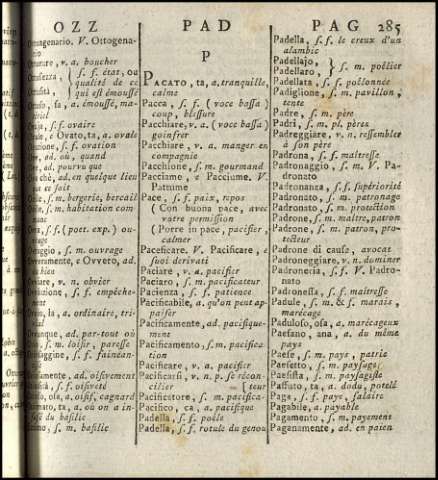 OZZ PAD PAG 285
Ottagenario. V. Ottogena-
rio
Otturare, v. a. boucher
s. f. état, ou
qualité de ce
qui est émoussé
a. émoussé, ma-
s. f. ovaire
e Ovato, ta, a. ovale
s. f. ovation
ad. où, quand
ad. pourvu que
ché, ad. en quelque lieu
que ce soit
s. m. bergerie, bercail
s. m. habitation com-
mune
s. f. (poet. exp.) ou-
vrage
s. m. ouvrage
Ovveramente, e Ovvero, ad.
ou bien
Ovviare, v. n. obvier
s. f. empêche-
ment
la, a. ordinaire, tri-
vial
Ovunque, ad. par-tout où
Ozio, s. m. loisir, paresse
s. f. fainéan-
tise
ad. oisivement
s. f. oisiveté
Ozioso, osa, a. oisif, cagnard
ta, a. où on a in-
fusé du basilic
s. m. basilic
P
PACATO, ta, a. tranquille,
calme
Pacca, s. f. (voce bassa)
coup, blessure
Pacchiare, v. a. (voce bassa)
goinfrer
Pacchiare, v. a. manger en
compagnie
Pacchione, s. m. gourmand
Pacciame, e Pacciume. V.
Pattume
Pace, s. f. paix, repos
(Con buona pace, avec
votre permission
(Porre in pace, pacifier,
calmer
Paceficare. V. Pacificare, e
suoi derivati
Paciare, v. a. pacifier
Paciaro, s. m. pacificateur
Pacienza, s. f. patience
Pacificabile, a. qu'on peut ap-
paiser
Pacificamente, ad. pacifique-
ment
Pacificamento, s. m. pacifica-
tion
Pacificare, v. a. pacifier
Pacificarsi, v. n. p. se récon-
cilier [teur
Pacificatore, s. m. pacifica-
Pacifico, ca, a. pacifique
Padella, s. f. poële
Padella, s. f. rotule du genou
Padella, s. f. le creux d'un
alambic
Padellajo,
Padellaro, } s. m. poêlier
Padellata, s. f. poêlonnée
Padiglione, s. m. pavillon,
tente
Padre, s. m. père
Padri, s. m. pl. pères
Padreggiare, v. n. ressembler
à son père
Padrona, s. f. maîtresse
Padronaggio, s. m. V. Pa-
dronato
Padronanza, s. f. supériorité
Padronato, s. m. patronage
Padronato, s. m. protection
Padrone, s. m. maître, patron
Padrone, s. m. patron, pro-
tecteur
Padrone di causa, avocat
Padroneggiare, v. n. dominer
Padroneria, s. f. V. Padro-
nato
Padronessa, s. f. maîtresse
Padule, s. m. & f. marais,
marécage
Paduloso, osa, a. marécageux
Paesano, ana, a. du même
pays
Paese, s. m. pays, patrie
Paesetto, s. m. paysage
Paesista, s. m. paysagiste
Paffuto, ta, a. dodu, potelé
Paga, s. f. paye, salaire
Pagabile, a. payable
Pagamento, s. m. payement
Paganamente, ad. en paien